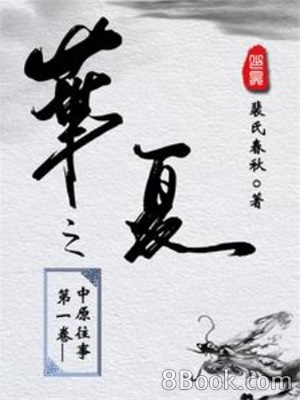 華
夏
之
裴氏春秋。著
中原往事
第一卷—
8Book.com